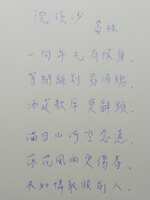 浣溪沙
晏殊
一向年光有限身，
等闲离别易销魂，
酒筵歌席莫辞频。
满目山河空念远，
落花风雨更伤春，
不如怜取眼前人。